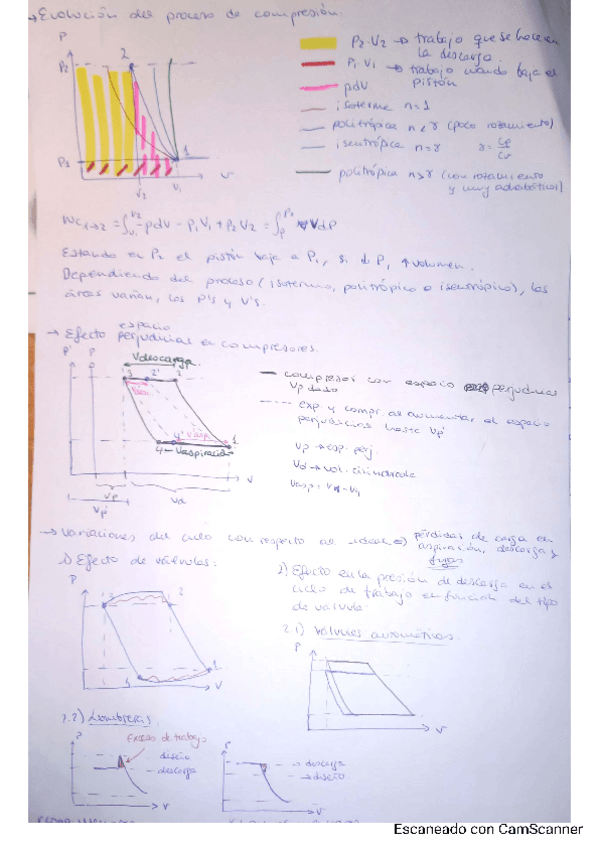 → Evolución del proceso de compresión:
P
P2
2
P1
1
V2
V1
V
P2·V2 → trabajo que se hace en la descarga.
P1·V1 → trabajo cuando baja el pistón
pdV
isoterma n=1
politrópica n<γ (poco rozamiento)
isentrópica n=γ γ=Cp/Cv
politrópica n>γ (con rozamiento y muy adiabático)
Estando en P2 el pistón baja a P1, si ↓ P, ↑ volumen.
Dependiendo del proceso (isotermo, politrópico o isentrópico), las
áreas varían, los P's y V's.
→ Efecto espacio perjudicial en compresores.
P' P
Vdescarga
3 2' 2
4 4' 1
Vaspiración
V
Vp
Vd
Vp'
compresor con espacio perjudicial
Vp dado
exp y compr. al aumentar el espacio
perjudicial hasta Vp'
Vp → esp. perj.
Vd → vol. cilindrada
→ Variaciones del ciclo con respecto al ideal pérdidas de carga en
aspiración, descarga y
fugas
1) Efecto de válvulas:
P
2
1
V
2) Efecto en la presión de descarga en el
ciclo de trabajo en función del tipo
de válvula
2.1) Válvulas automáticas.
P
V
2.2) Lumbreras
P
Exceso de trabajo
diseño
descarga
V
descarga
→ diseño
V
Escaneado con CamScanner